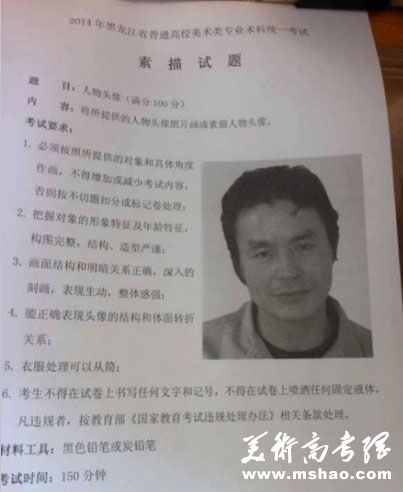 2014年黑龙江省普通高校美术类专业术科统一考试
素描试题
题 目：人物头像（满分100分）
内 容：将所提供的人物头像照片画成素描人物头像。
考试要求：
1、必须按照所提供的对象和具体角度
作画，不得增加或减少考试内容，
否则按不切题扣分或标记卷处理；
2、把握对象的形象特征及年龄特征，
构图完整，结构、造型严谨；
3、画面结构和明暗关系正确，深入的
刻画，表现生动，整体感强；
4、能正确表现头像的结构和体面转折
关系；
5、衣服处理可以从简；
6、考生不得在试卷上书写任何文字和记号，不得在试卷上喷洒任何固定液体，
凡违规者，按教育部《国家教育考试违规处理办法》相关条款处理。
材料工具：黑色铅笔或炭铅笔
考试时间：150分钟
美术高考网
www.mshao.com